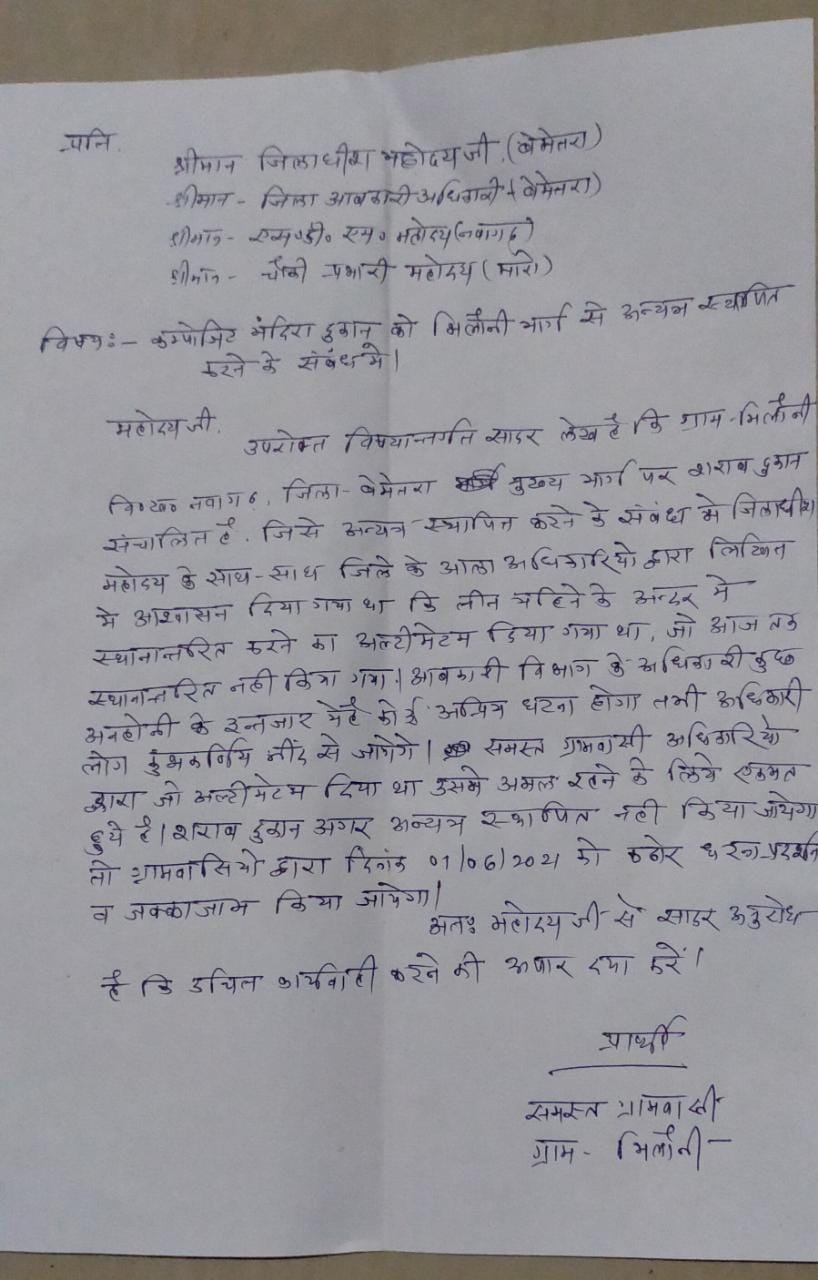 प्रति.
श्रीमान जिलाधीश महोदय जी. (बेमेतरा)
श्रीमान - जिला आबकारी अधिकारी (बेमेतरा)
श्रीमान - एस०डी० एम० महोदय (नवागढ़)
श्रीमान - चौकी प्रभारी महोदय (मारो)
विषय:- कम्पोजिट मंदिरा दुकान को भिलौनी मार्ग से अन्यत्र स्थापित
करने के संबंध मे।
महोदय जी.
उपरोक्त विषयान्तर्गत सादर लेख है कि ग्राम-भिलौनी
वि०ख० नवागढ़, जिला-बेमेतरा मुख्य मार्ग पर शराब दुकान
संचालित है. जिसे अन्यत्र स्थापित करने के संबंध मे जिलाधीश
महोदय के साथ-साथ जिले के आला अधिकारियो द्वारा लिखित
मे आश्वासन दिया गया था कि तीन महिने के अन्दर मे
स्थानान्तरित करने का अल्टीमेटम दिया गया था, जो आज तक
स्थानान्तरित नही किया गया। आबकारी विभाग के अधिकारी कुछ
अनहोनी के इन्तजार मे है कोई अप्रिय घटना होगा तभी अधिकारी
लोग कुंभकर्णिय नींद से जागेगे। समस्त ग्रामवासी अधिकारियो
द्वारा जो अल्टीमेटम दिया था उसमे अमल रहने के लिये एकमत
हुये है। शराब दुकान अगर अन्यत्र स्थापित नही किया जायेगा
तो ग्रामवासियो द्वारा दिनांक 01/06/2021 को कठोर धरना-प्रदर्शन
व चक्काजाम किया जायेगा।
अतः महोदय जी से सादर अनुरोध
है कि उचित कार्यवाही करने की अपार दया करें।
प्रार्थी
समस्त ग्रामवासी
ग्राम - भिलौनी